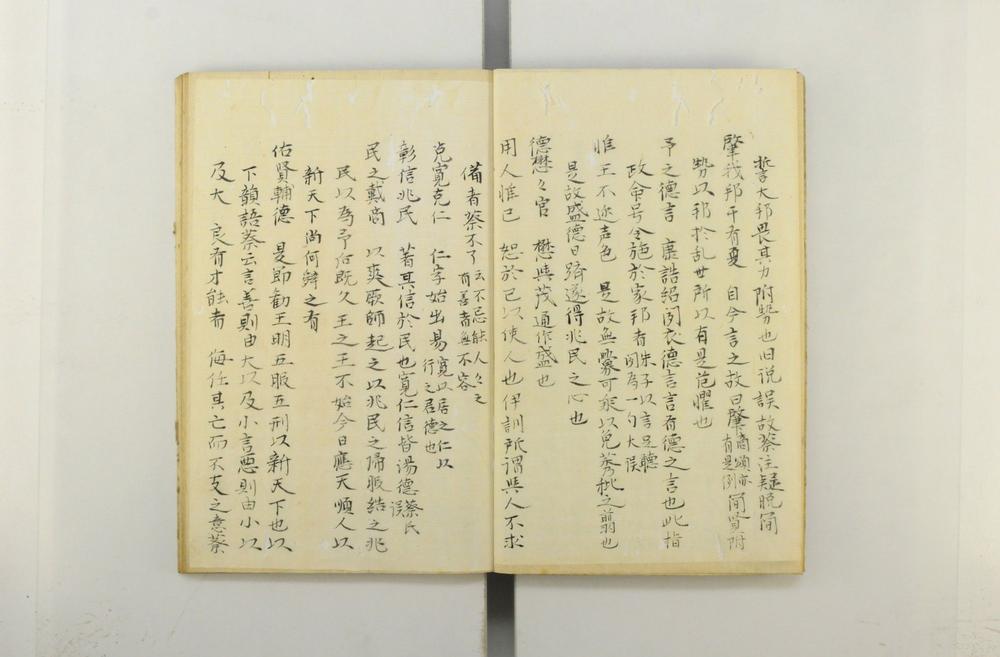 誓大邦畏其力附勢也旧説誤故蔡注疑脱簡
肇我邦于有夏　自今言之故曰肇商頌亦有是例簡賢附
勢以邦於乱世所以有是危懼也
予之德言　康誥紹聞衣德言言有德之言也此指
政命号令施於家邦者朱子以言足聽聞為一句大誤
惟王不迩声色　是故無釁可乘以免
是故盛德日躋遂得兆民之心也
德懋々官　懋與茂通作盛也
用人惟已　恕於已以使人也伊訓所謂與人不求
備者蔡不了云不忌能人々之有善者無不容
克寛克仁　仁字始出易寛以居之仁以行之居德也
彰信兆民　著其信於民也寛仁信皆湯德蔡氏誤
民之戴商　以爽厥師起之以兆民之帰服結之兆
民以為予后既久王之王不始今日應天順人以
新天下尚何辭之有
佑賢輔德　是即勸王明五服五刑以新天下也以
下韻語蔡云言善則由大以及小言惡則由小以
及大　良有才能者　侮任其亡而不支之意蔡